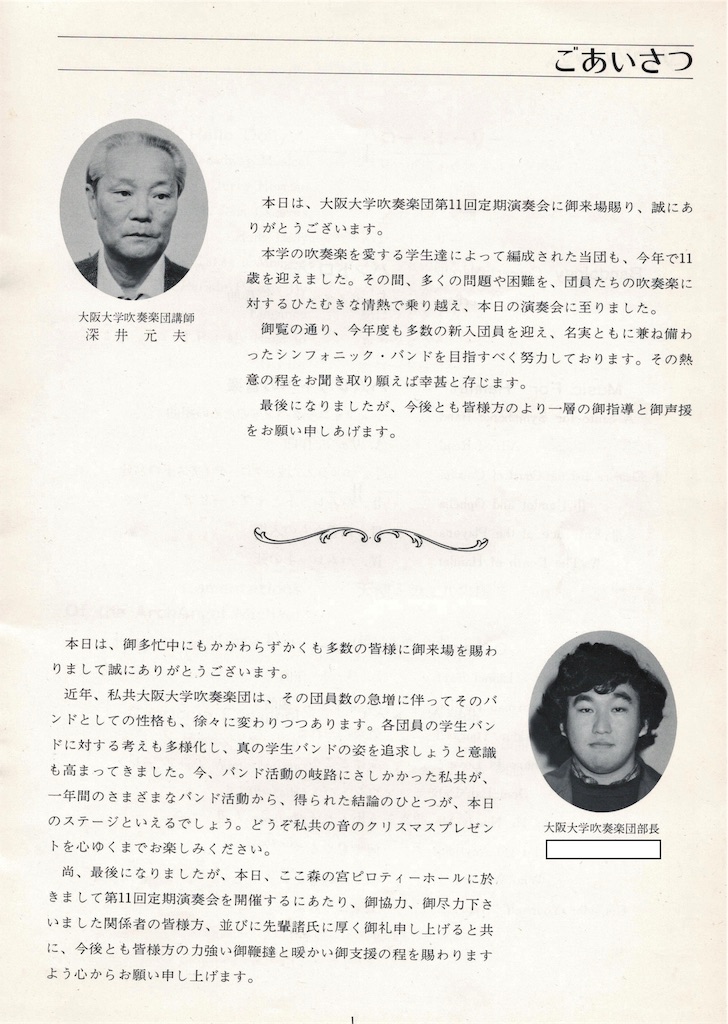 ごあいさつ
本日は、大阪大学吹奏楽団第11回定期演奏会に御来場賜り、誠にあ
りがとうございます。
本学の吹奏楽を愛する学生達によって編成された当団も、今年で11
歳を迎えました。その間、多くの問題や困難を、団員たちの吹奏楽に
対するひたむきな情熱で乗り越え、本日の演奏会に至りました。
御覧の通り、今年度も多数の新入団員を迎え、名実ともに兼ね備わ
ったシンフォニック・バンドを目指すべく努力しております。その熱
意の程をお聞き取り願えば幸甚と存じます。
最後になりましたが、今後とも皆様方のより一層の御指導と御声援
をお願い申しあげます。
大阪大学吹奏楽団講師
深井元夫
本日は、御多忙中にもかかわらずかくも多数の皆様に御来場を賜わ
りまして誠にありがとうございます。
近年、私共大阪大学吹奏楽団は、その団員数の急増に伴ってそのバ
ンドとしての性格も、徐々に変わりつつあります。各団員の学生バン
ドに対する考えも多様化し、真の学生バンドの姿を追求しょうと意識
も高まってきました。今、バンド活動の岐路にさしかかった私共が、
一年間のさまざまなバンド活動から、得られた結論のひとつが、本日
のステージといえるでしょう。どうぞ私共の音のクリスマスプレゼン
トを心ゆくまでお楽しみください。
尚、最後になりましたが、本日、ここ森の宮ピロティーホールに於
きまして第11回定期演奏会を開催するにあたり、御協力、御尽力下さ
いました関係者の皆様方、並びに先輩諸氏に厚く御礼申し上げると共
に、今後とも皆様方の力強い御鞭撻と暖かい御支援の程を賜わります
よう心からお願い申し上げます。
大阪大学吹奏楽団部長
1